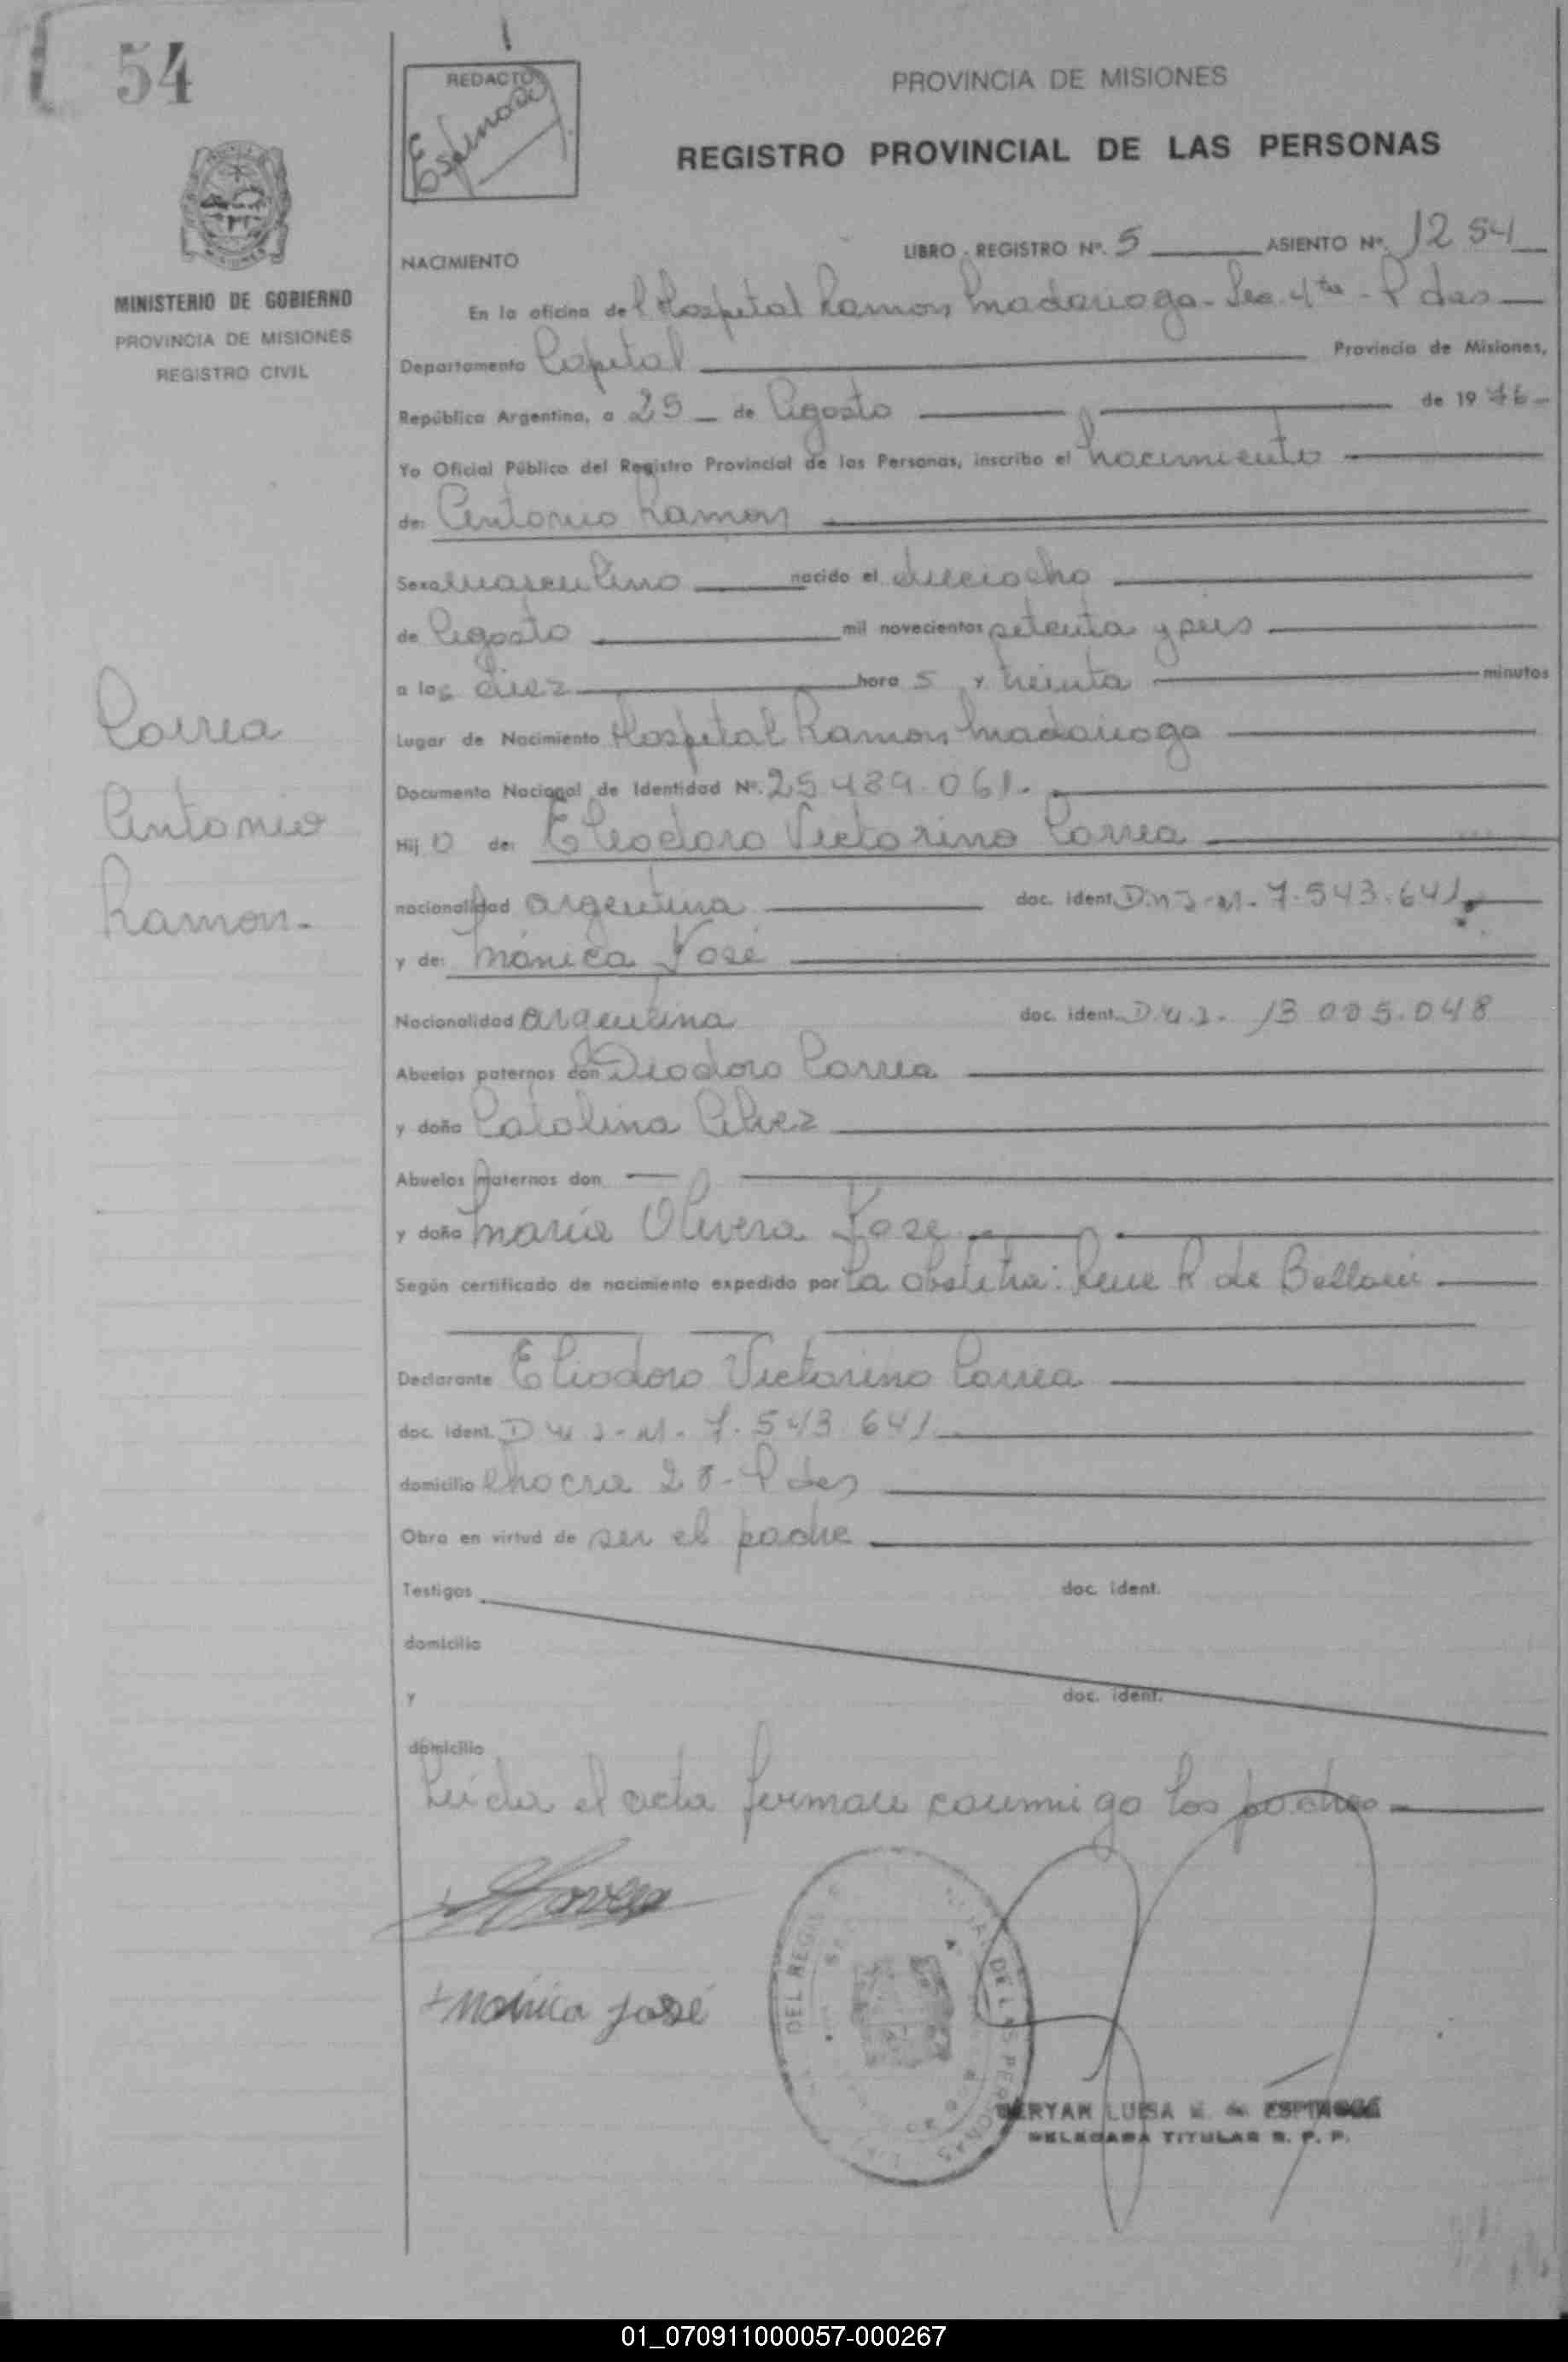 54
REDACTO
Espinosa
PROVINCIA DE MISIONES
REGISTRO PROVINCIAL DE LAS PERSONAS
MINISTERIO DE GOBIERNO
PROVINCIA DE MISIONES
REGISTRO CIVIL
NACIMIENTO
LIBRO - REGISTRO Nº. 5 ASIENTO Nº. 1254
En la oficina del Hospital Ramon Madariaga - Sec. 4ta - Pdas
Departamento Capital Provincia de Misiones,
República Argentina, a 25 de Agosto de 1976
Yo Oficial Público del Registro Provincial de las Personas, inscribo el nacimiento
de: Antonio Ramon
Sexo masculino nacido el dieciocho
de Agosto mil novecientos setenta y seis
a las diez hora s y treinta minutos
Lugar de Nacimiento Hospital Ramon Madariaga
Documento Nacional de Identidad Nº. 25.489.061.
Hij o de: Eleodoro Victorino Correa
nacionalidad argentina doc. ident. D.n.i-M. 7.543.641
y de: Mónica José
Nacionalidad argentina doc. ident. D.n.i. 13.005.048
Abuelos paternos don Diodoro Correa
y doña Catalina Alvez
Abuelos maternos don
y doña María Olivera Jose
Según certificado de nacimiento expedido por La obstetra: Rene R de Belloni
Declarante Eliodoro Victorino Correa
doc. ident. D n i - M. 7.543.641
domicilio chacra 28 - Pdas
Obra en virtud de ser el padre
Testigos doc. ident.
domicilio
y doc. ident.
domicilio
Leída el acta firman conmigo los padres
Correa
Antonio
Ramon.-
Mónica José
DEL REGIS DE LAS PERSONAS
MERYAN LUISA M. de ESPINOSA
DELEGADA TITULAR R. P. P.
01_070911000057-000267